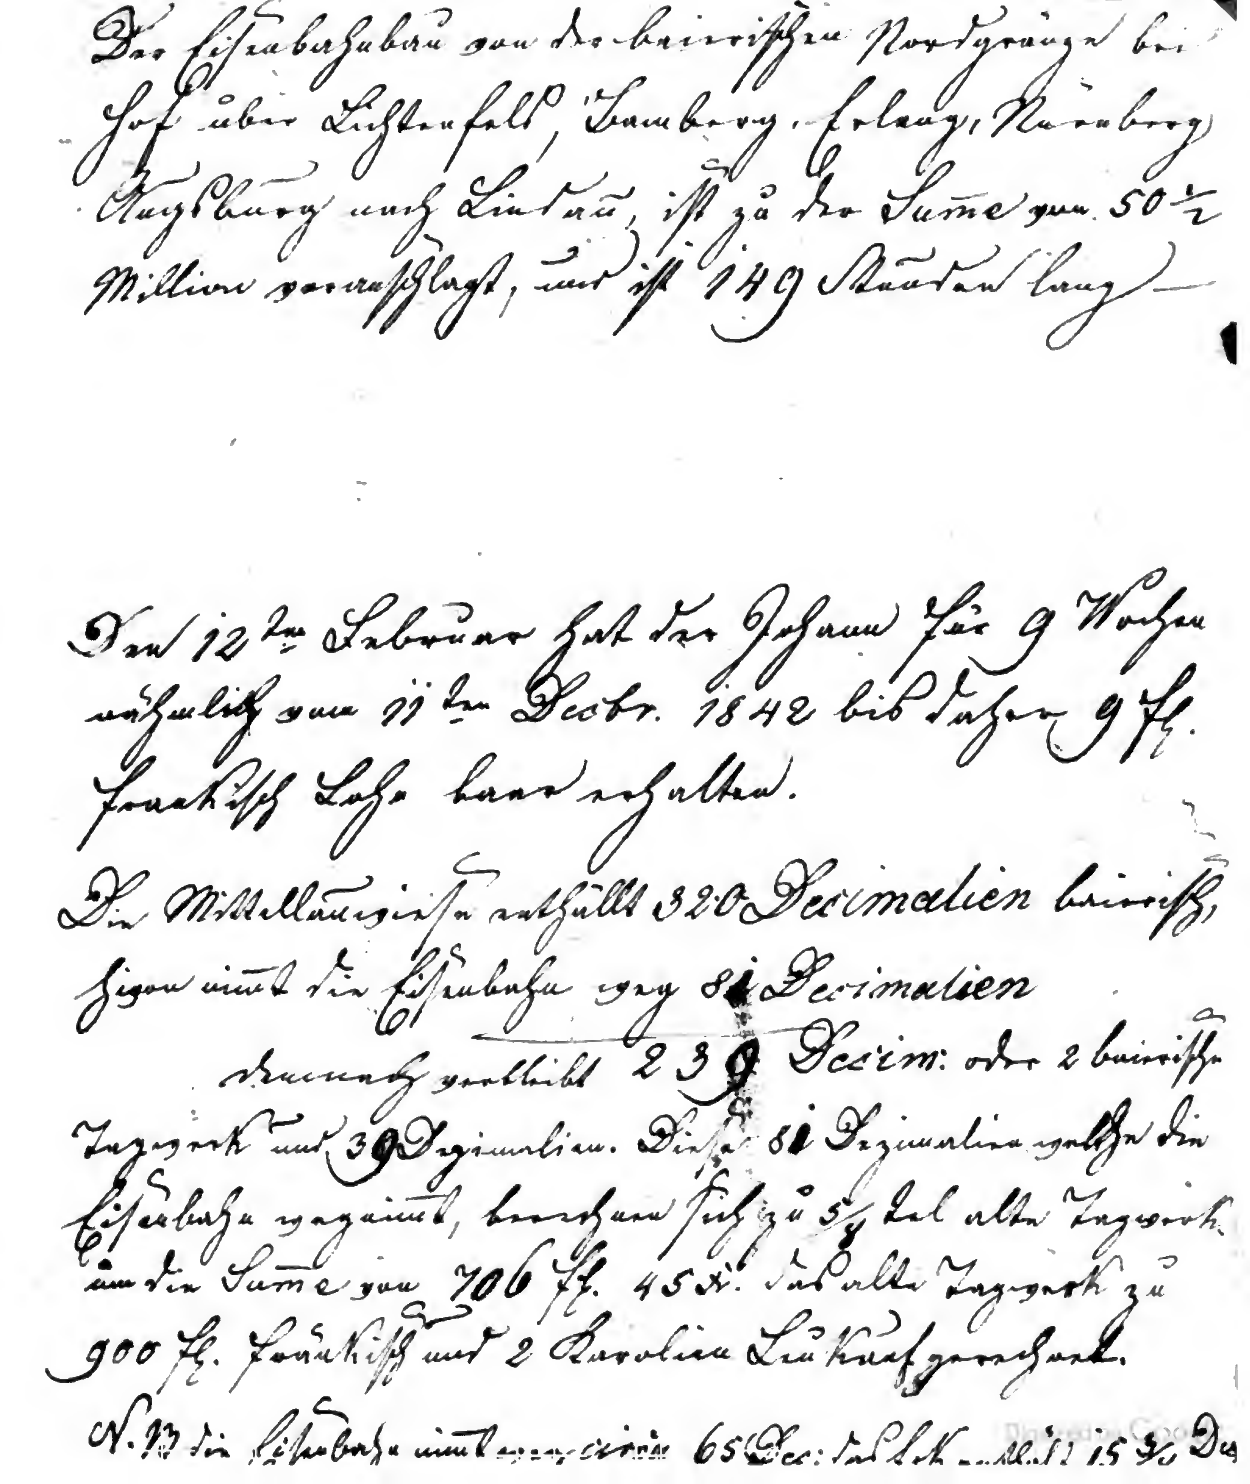 Der Eisenbahnbau von der baierischen Nordgränze bei
Hof über Lichtenfels, Bamberg, Erlang, Nürnberg
Augsburg nach Lindau, ist zu der Sum̄e von 50 1/2
Million veranschlagt, und ist 149 Stunden lang —
Den 12ten Februar hat der Johann für 9 Wochen
nähmlich vom 11ten Decbr. 1842 bis daher 9 fl.
fränkisch Lohn baar erhalten.
Die Mittellauwiese enthällt 320 Decimalien baierisch,
hievon nim̄t die Eisenbahn weg 81 Decimalien
demnach verbleibt 239 Decim: oder 2 baierische
Tagwerk und 39 Dezimalien. Diese 81 Dezimalien welche die
Eisenbahn wegnim̄t, berechnen sich zu 5/8 tel alte Tagwerk
um die Sum̄e von 706 fl. 45 Xr. das alte Tagwerk zu
900 fl. fränkisch und 2 Karolien Leukauf gerechnet.
N. B die Eisenbahn nim̄t 65 Dec: das 15 3/4 Dec